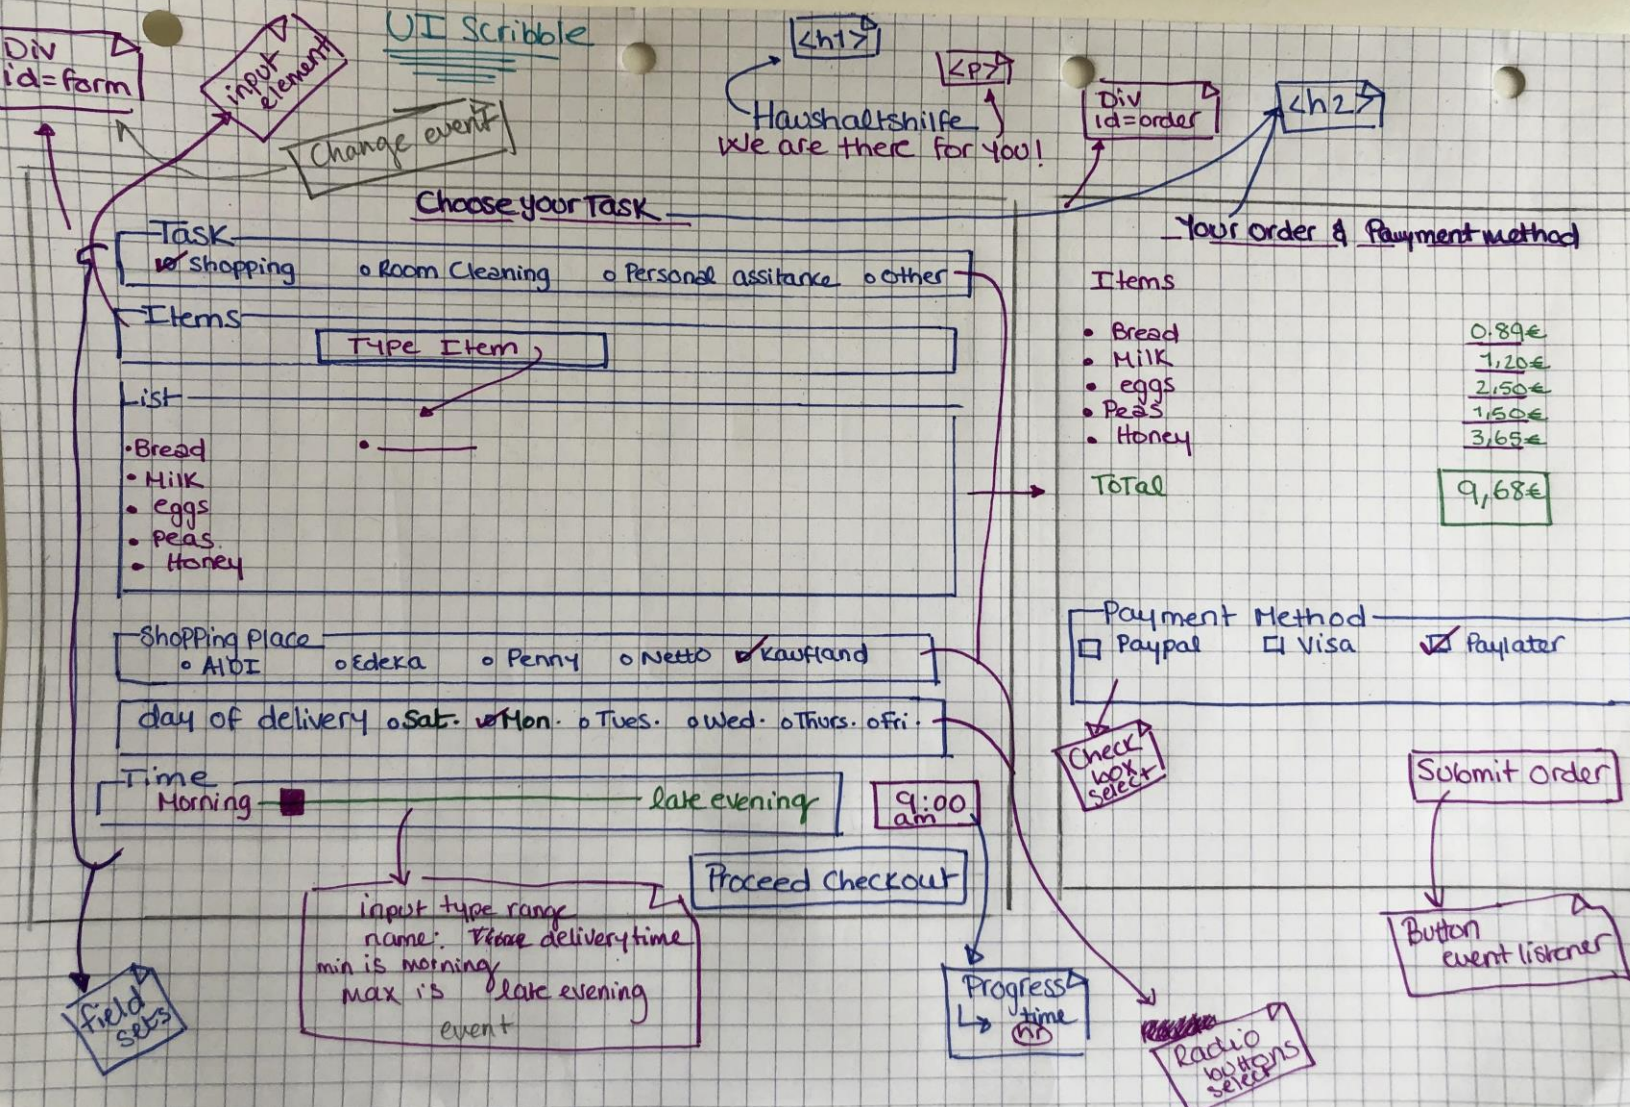 UI Scribble
Div
id=form
input
element
Change event
<h1>
<p>
Haushaltshilfe
We are there for you!
Div
id=order
<h2>
Choose your Task
Task
Shopping Room Cleaning Personal assitance Other
Items
Type Item
List
Bread
Milk
eggs
Peas
Honey
Shopping place
AlDI Edeka Penny Netto Kaufland
day of delivery Sat. Mon. Tues. Wed. Thurs. Fri.
Time
Morning late evening
9:00
am
Proceed Checkout
input type range
name: deliverytime
min is morning
max is late evening
event
field
sets
Progress
time
hr
Radio
buttons
select
Your order & Payment method
Items
Bread 0.89€
Milk 1,20€
eggs 2,50€
Peas 1,50€
Honey 3,65€
Total 9,68€
Payment Method
Paypal Visa Paylater
Check
box
select
Submit order
Button
event listener